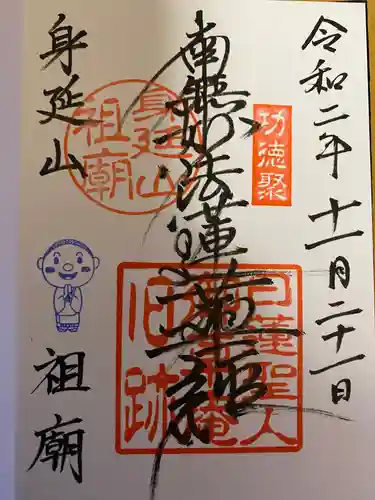 令和二年十一月二十一日
功徳聚
南無妙法蓮華経
身延山
祖廟
身延山
祖廟
日蓮聖人
旧跡